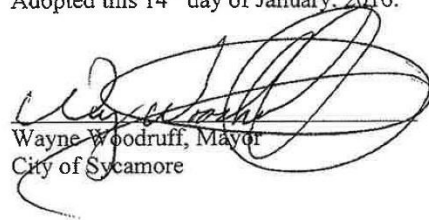 Adopted this 14th day of January, 2016.
Wayne Woodruff, Mayor
City of Sycamore